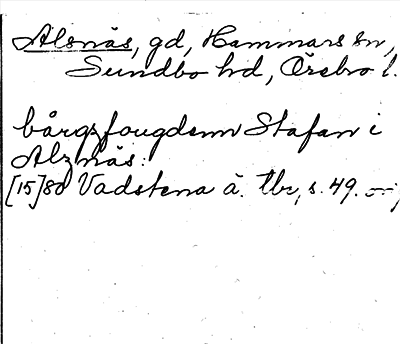 Alsnäs, gd, Hammars sn,
Sundbo hd, Örebro l.
bårgzfougdenn Stafan i
Alznäs.
[15]80 Vadstena ä. tbr, s. 49.